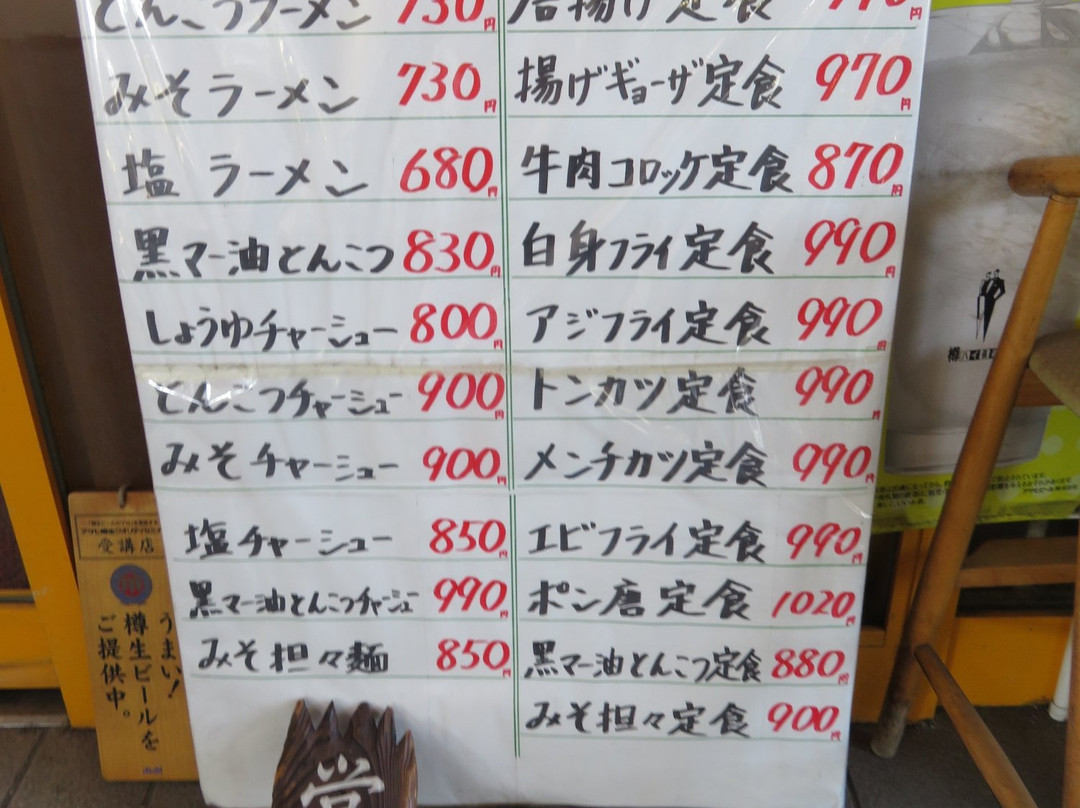 とんこつラーメン 730円
みそラーメン 730円
塩 ラーメン 680円
黒マー油とんこつ 830円
しょうゆチャーシュー 800円
とんこつチャーシュー 900円
みそチャーシュー 900円
塩チャーシュー 850円
黒マー油とんこつチャーシュー 990円
みそ担々麺 850円
唐揚げ定食
揚げギョーザ定食 970円
牛肉コロッケ定食 870円
白身フライ定食 990円
アジフライ定食 990円
トンカツ定食 990円
メンチカツ定食 990円
エビフライ定食 990円
ポン唐定食 1020円
黒マー油とんこつ定食 880円
みそ担々定食 900円
営
受講店
うまい!
樽生ビールを
ご提供中。
アサヒビール株式会社